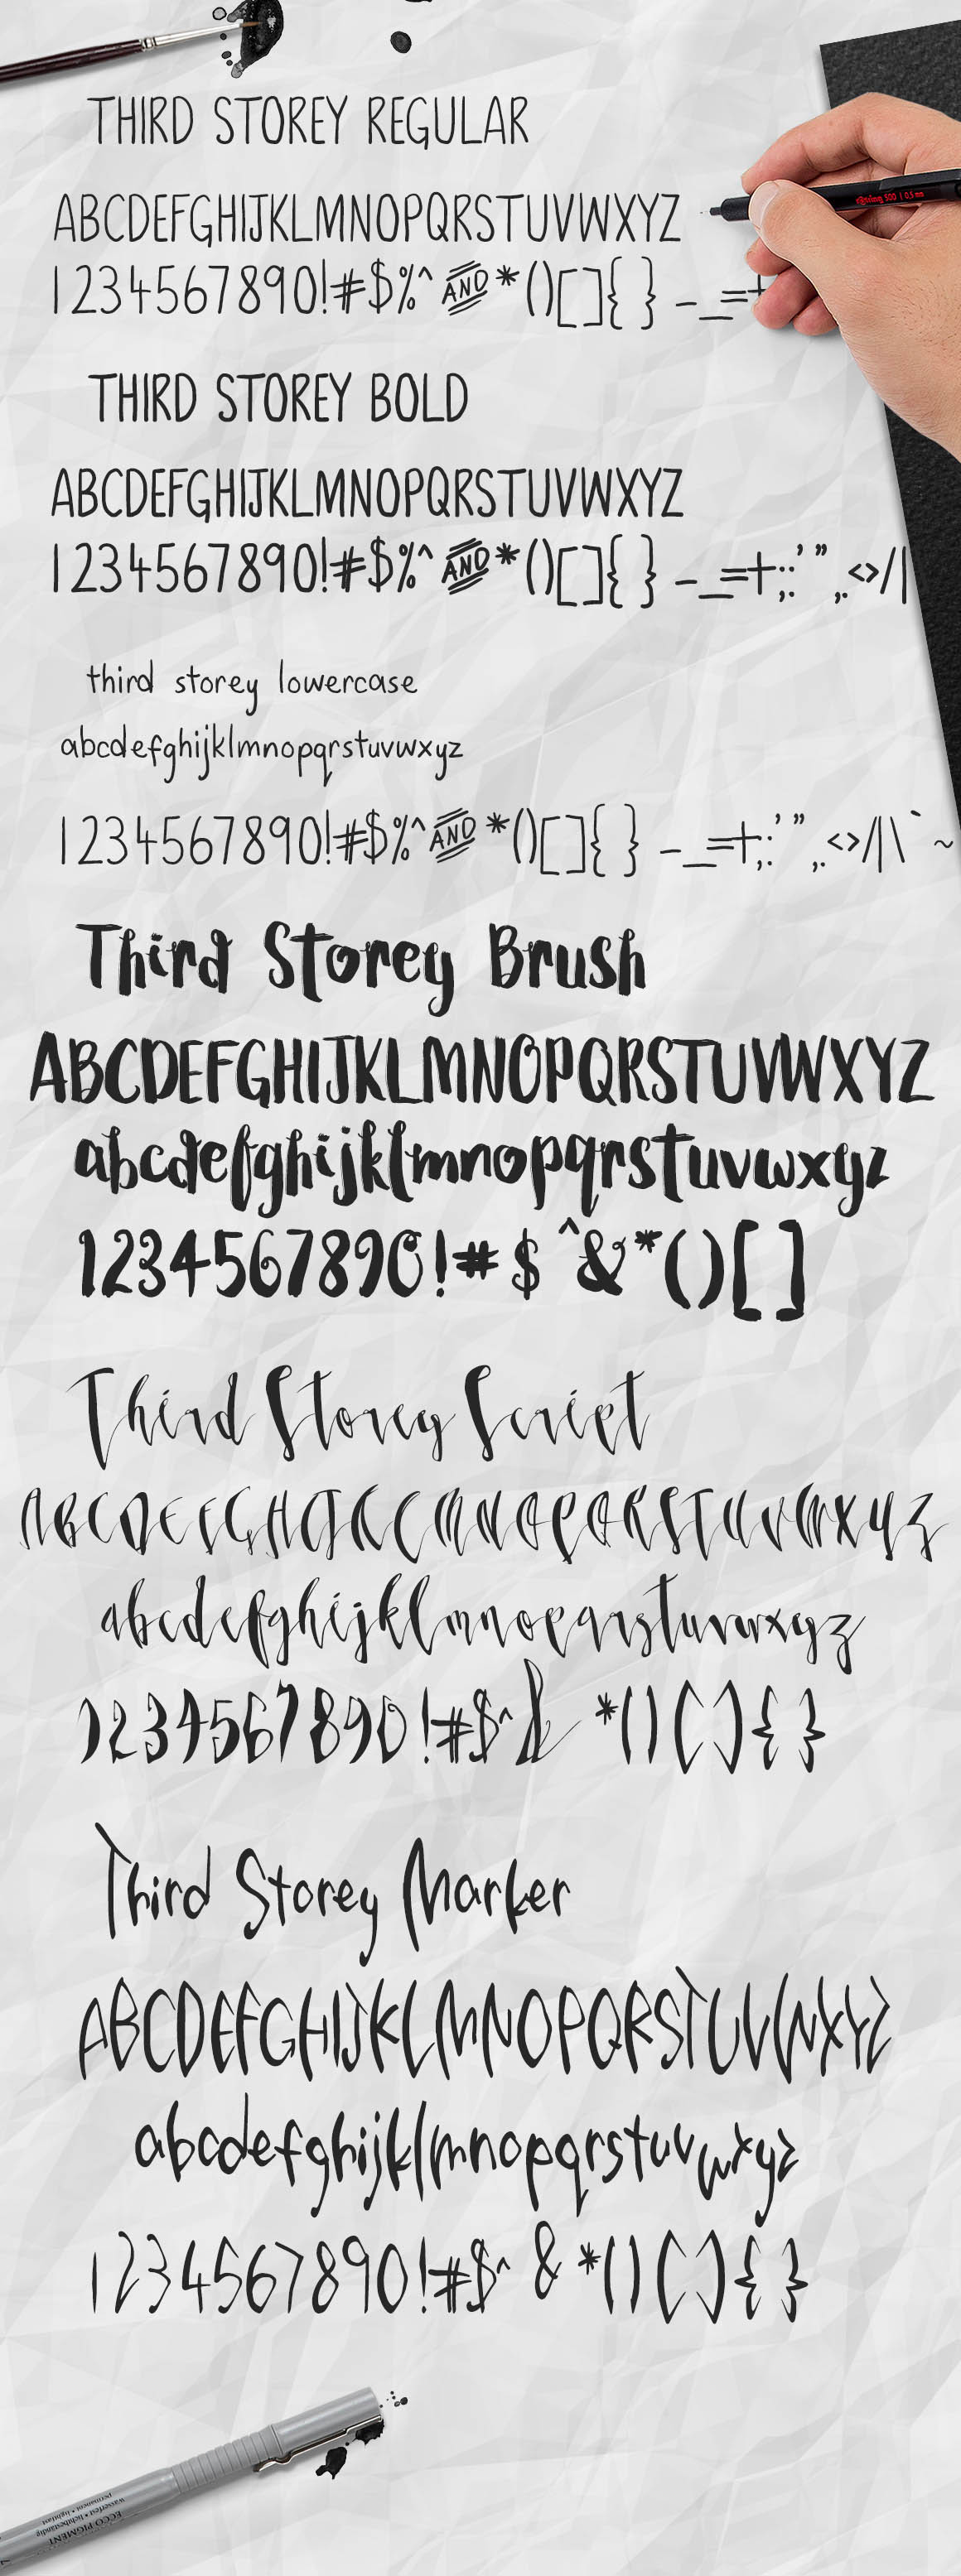 THIRD STOREY REGULAR
ABCDEFGHIJKLMNOPQRSTUVWXYZ
1234567890!#$%^ AND *()[]{ } -_=+
THIRD STOREY BOLD
ABCDEFGHIJKLMNOPQRSTUVWXYZ
1234567890!#$%^ AND *()[]{ } -_=+;:'" ,.<>/|
third storey lowercase
abcdefghijklmnopqrstuvwxyz
1234567890!#$%^ AND *()[]{ } -_=+;:'" ,.<>/|\ ` ~
Third Storey Brush
ABCDEFGHIJKLMNOPQRSTUVWXYZ
abcdefghijklmnopqrstuvwxyz
1234567890!#$^&*()[]
Third Storey Script
ABCDEFGHIJKLMNOPQRSTUVWXYZ
abcdefghijklmnopqrstuvwxyz
1234567890!#$^&*()[]{ }
Third Storey Marker
ABCDEFGHIJKLMNOPQRSTUVWXYZ
abcdefghijklmnopqrstuvwxyz
1234567890!#$^&*()[]{ }
ECCO PIGMENT
wasserfest • lichtbeständig
permanent • lightfast